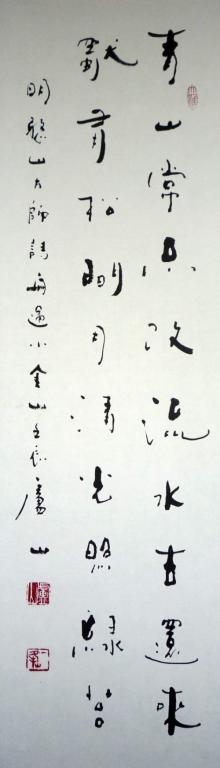 青山常不改流水去還來
獸背松明月清光照綠苔
明憨山大師詩 舟過小金山 壬辰 廬山